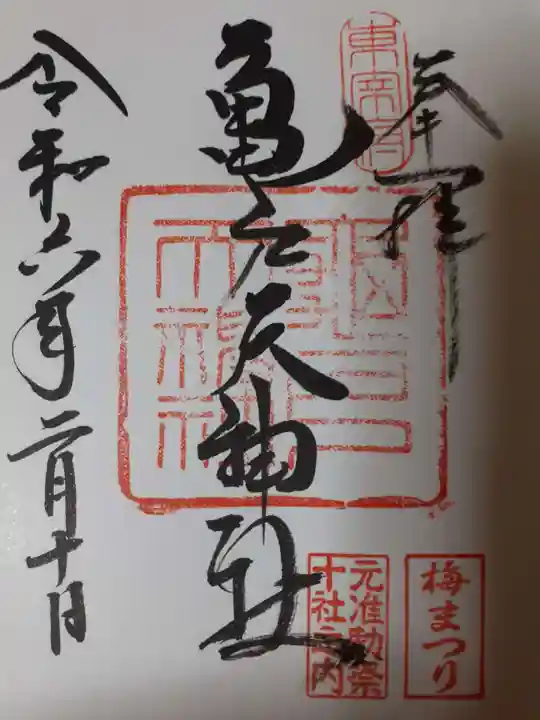 奉拝
東宰府
亀戸天神社
令和六年二月十日
元准勅祭
十社之内
梅まつり